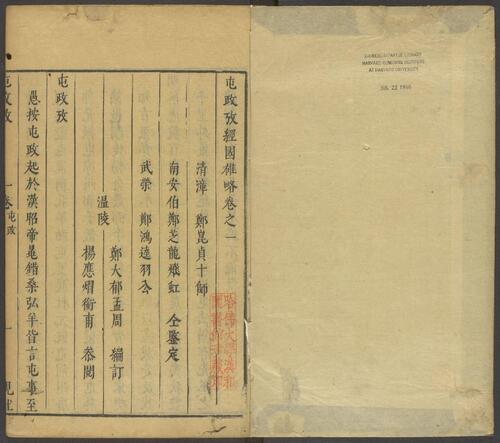 屯政攷經國雄略卷之一
清漳 鄭崑貞十師
南安伯鄭芝龍飛虹 仝鑒定
武榮 鄭鴻逵羽公
溫陵 鄭大郁孟周 編訂
楊應燿衡甫 叅閱
屯政攷
愚按屯政起於漢昭帝晁錯桑弘羊皆言屯事至
屯政攷 一卷 屯政 一
CHINESE-JAPANESE LIBRARY
HARVARD-YENCHING INSTITUTE
AT HARVARD UNIVERSITY
JUL 22 1955